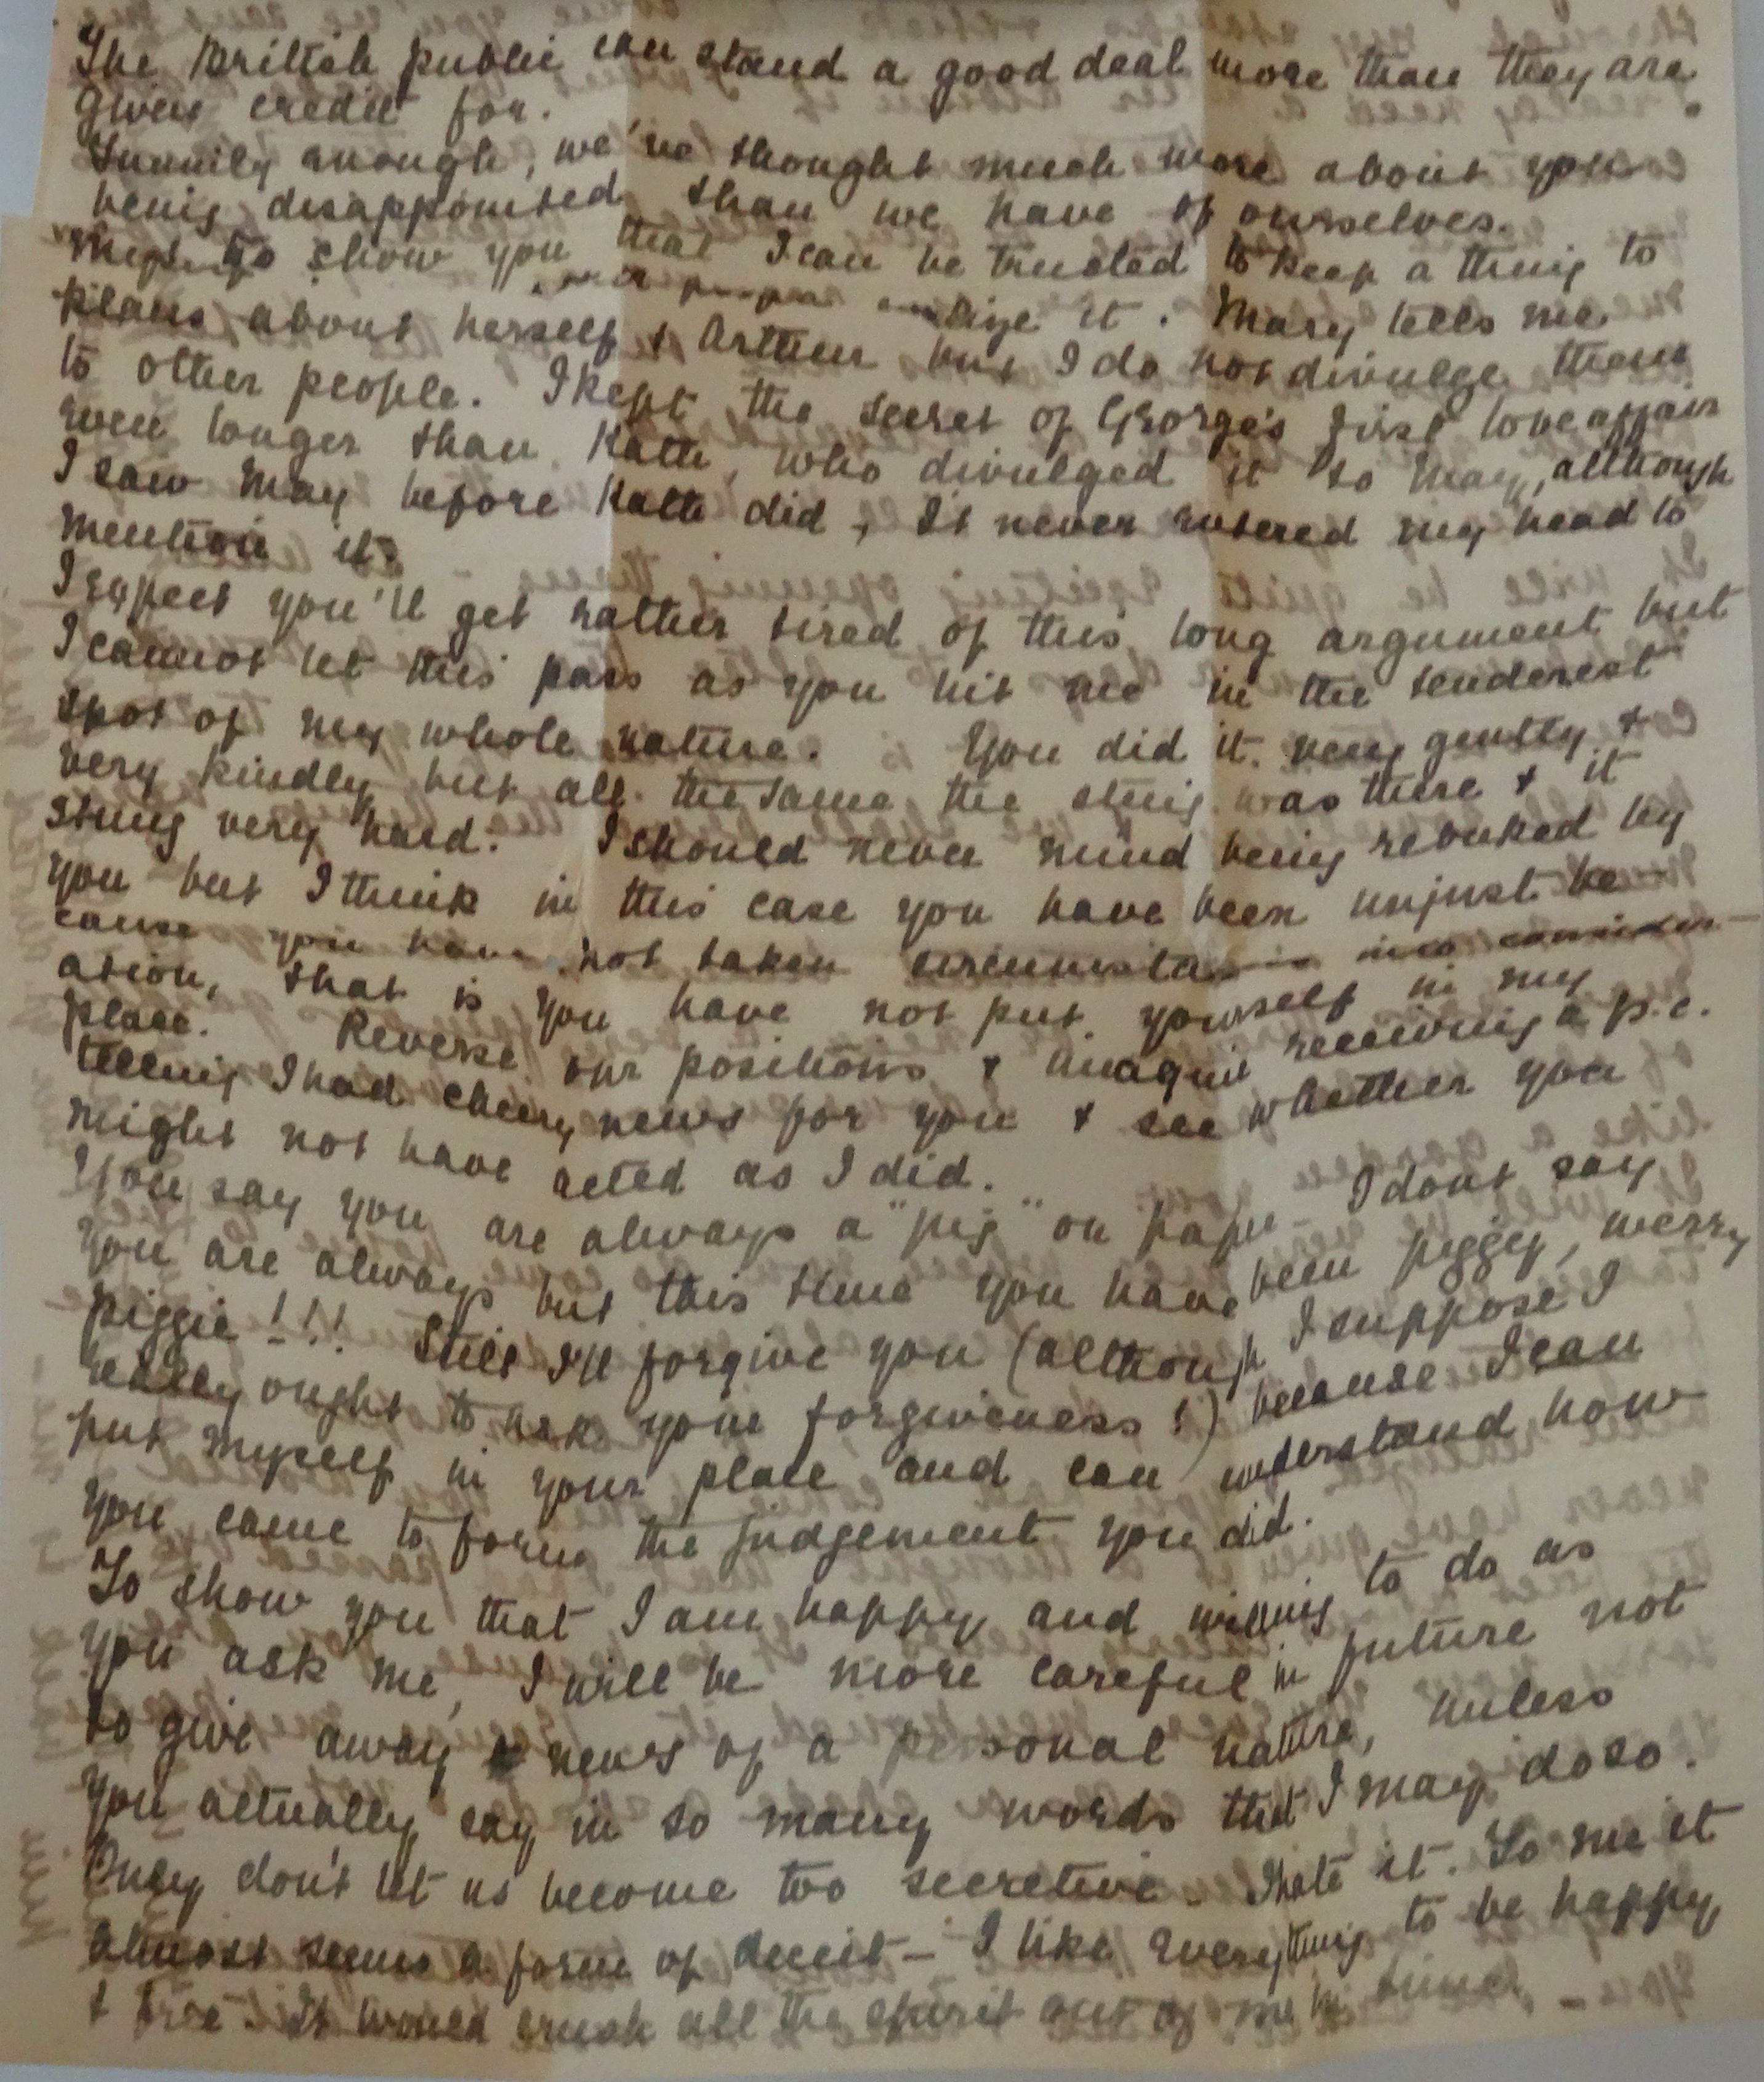 The British public can stand a good deal more than they are
given credit for.
Funnily enough, we've thought much more about you
being disappointed than we have of ourselves.
to show you that I can be trusted to keep a thing to
it. Mary tells me
plans about herself & Arthur but I do not divulge them
to other people. I kept the secret of George's first love affair
even longer than Katie, who divulged it to May, although
I saw May before Katie did, It never entered my head to
mention it.
I expect you'll get rather tired of this long argument but
I cannot let this pass as you hit me in the tenderest
spot of my whole nature. You did it very gently &
very kindly but all the same the sting was there & it
stung very hard. I should never mind being rebuked by
you but I think in this case you have been unjust be-
cause you have not taken circumstances into consider-
ation, that is you have not put yourself in my
place. Reverse our positions & imagine receiving a p.c.
telling I had cheery news for you & see whether you
might not have acted as I did.
You say you are always a "pig" on paper - I dont say
you are always but this time you have been piggy, merry
piggie!!! Still I'll forgive you (although I suppose I
really ought to ask your forgiveness!) because I can
put myself in your place and can understand how
you came to form the judgement you did.
To show you that I am happy and willing to do as
you ask me, I will be more careful in future not
to give away news of a personal nature, unless
you actually say in so many words that I may do so.
Only don't let us become too secretive - I hate it. To me it
almost seems a form of deceit - I like everything to be happy
& free. It would crush all the spirit out of me in time